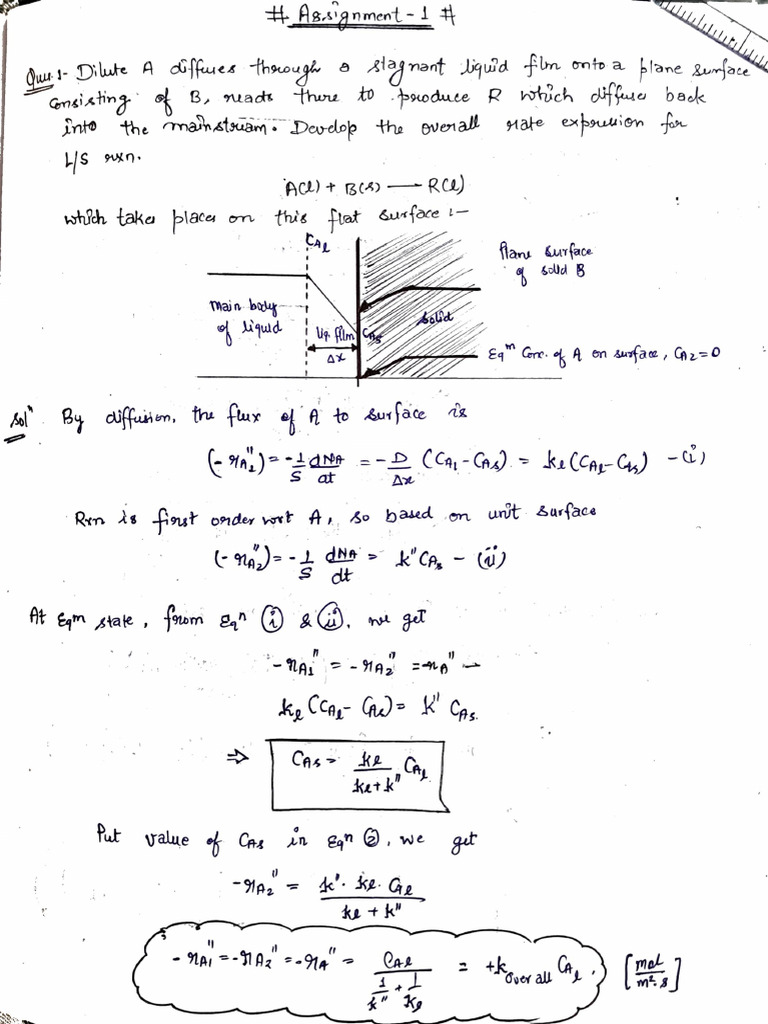 # Assignment-1 #
Ques.1- Dilute A diffuses through a stagnant liquid film onto a plane surface
consisting of B, reacts there to produce R which diffuse back
into the mainstream. Develop the overall rate expression for
L/S rxn.
A(l) + B(s) — R(l)
which takes places on this flat surface :-
C_Al
Plane surface
of solid B
main body
of liquid
liq. film C_As
Δx
solid
Eq^m Conc. of A on surface, C_A2=0
Sol^n By diffusion, the flux of A to surface is
(-r_A1'') = -1/S dN_A/dt = -D/Δx (C_Al - C_AS) = k_l (C_Al - C_As) - (i)
Rxn is first order wrt A, so based on unit surface
(-r_A2'') = -1/S dN_A/dt = k'' C_As - (ii)
At Eq^m state, from Eq^n (i) & (ii), we get
-r_A1'' = -r_A2'' = -r_A'' -
k_l (C_Al - C_As) = k'' C_As.
⇒ C_As = k_l/(k_l + k'') C_Al
Put value of C_As in Eq^n (2), we get
-r_A2'' = k''. k_l. C_Al/(k_l + k'')
-r_A1'' = -r_A2'' = -r_A'' = C_Al/(1/k'' + 1/k_l) = +k_over all C_Al. [mol/m².s]